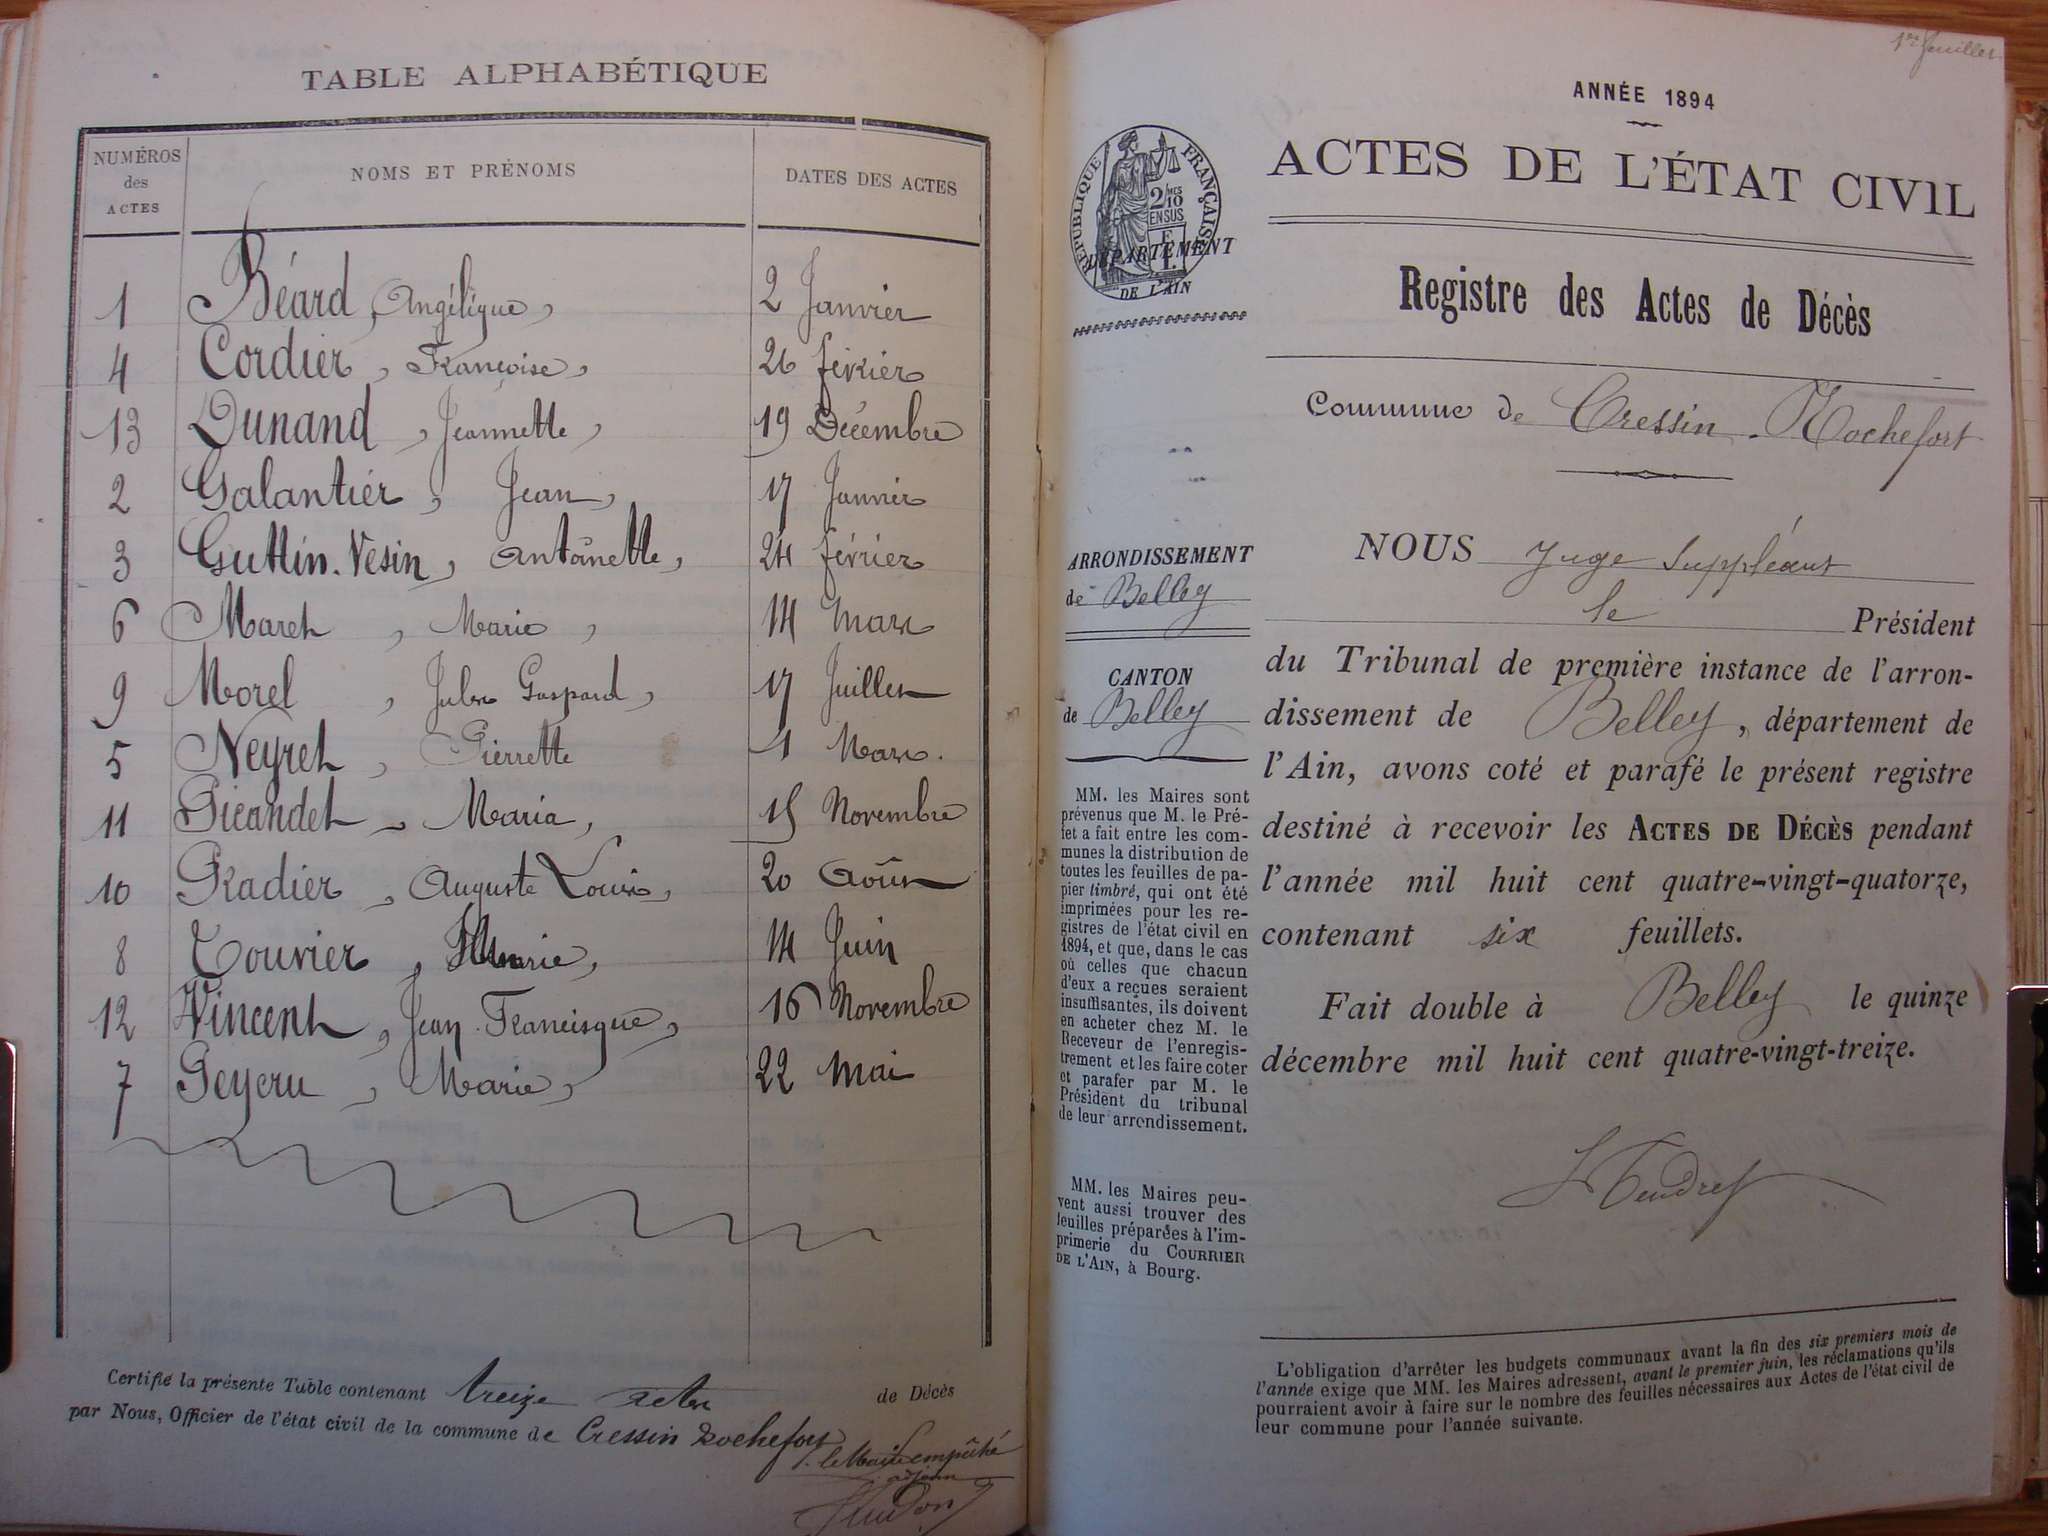 TABLE ALPHABÉTIQUE
NUMÉROS des ACTES NOMS ET PRÉNOMS DATES DES ACTES
1 Béard, Angélique, 2 Janvier
4 Cordier, Françoise, 26 février
13 Dunand, Jeannette, 19 Décembre
2 Galantier, Jean, 17 Janvier
3 Guttin-Vesin, Antoinette, 24 février
6 Maret, Marie, 14 Mars
9 Morel, Jules Gaspard, 17 Juillet
5 Neyret, Pierrette 1 Mars.
11 Picandet, Maria, 15 Novembre
10 Radier, Auguste Louis, 20 Août
8 Touvier, Marie, 14 Juin
12 Vincent, Jean-Francisque, 16 Novembre
7 Peycru, Marie, 22 Mai
Certifié la présente Table contenant treize actes de Décès
par Nous, Officier de l'état civil de la commune de Cressin Rochefort
le Maire empêché
adjoint
1er feuillet
ANNÉE 1894
ACTES DE L'ÉTAT CIVIL
RÉPUBLIQUE FRANÇAISE
2/10 MES
EN SUS
DÉPARTEMENT
DE L'AIN
Registre des Actes de Décès
Commune de Cressin-Rochefort
ARRONDISSEMENT
de Belley
CANTON
de Belley
MM. les Maires sont
prévenus que M. le Pré-
fet a fait entre les com-
munes la distribution de
toutes les feuilles de pa-
pier timbré, qui ont été
imprimées pour les re-
gistres de l'état civil en
1894, et que, dans le cas
où celles que chacun
d'eux a reçues seraient
insuffisantes, ils doivent
en acheter chez M. le
Receveur de l'enregis-
trement et les faire coter
et parafer par M. le
Président du tribunal
de leur arrondissement.
MM. les Maires peu-
vent aussi trouver des
feuilles préparées à l'im-
primerie du COURRIER
DE L'AIN, à Bourg.
NOUS Juge Suppléant
le Président
du Tribunal de première instance de l'arron-
dissement de Belley, département de
l'Ain, avons coté et parafé le présent registre
destiné à recevoir les ACTES DE DÉCÈS pendant
l'année mil huit cent quatre-vingt-quatorze,
contenant six feuillets.
Fait double à Belley le quinze
décembre mil huit cent quatre-vingt-treize.
L'obligation d'arrêter les budgets communaux avant la fin des six premiers mois de
l'année exige que MM. les Maires adressent, avant le premier juin, les réclamations qu'ils
pourraient avoir à faire sur le nombre des feuilles nécessaires aux Actes de l'état civil de
leur commune pour l'année suivante.